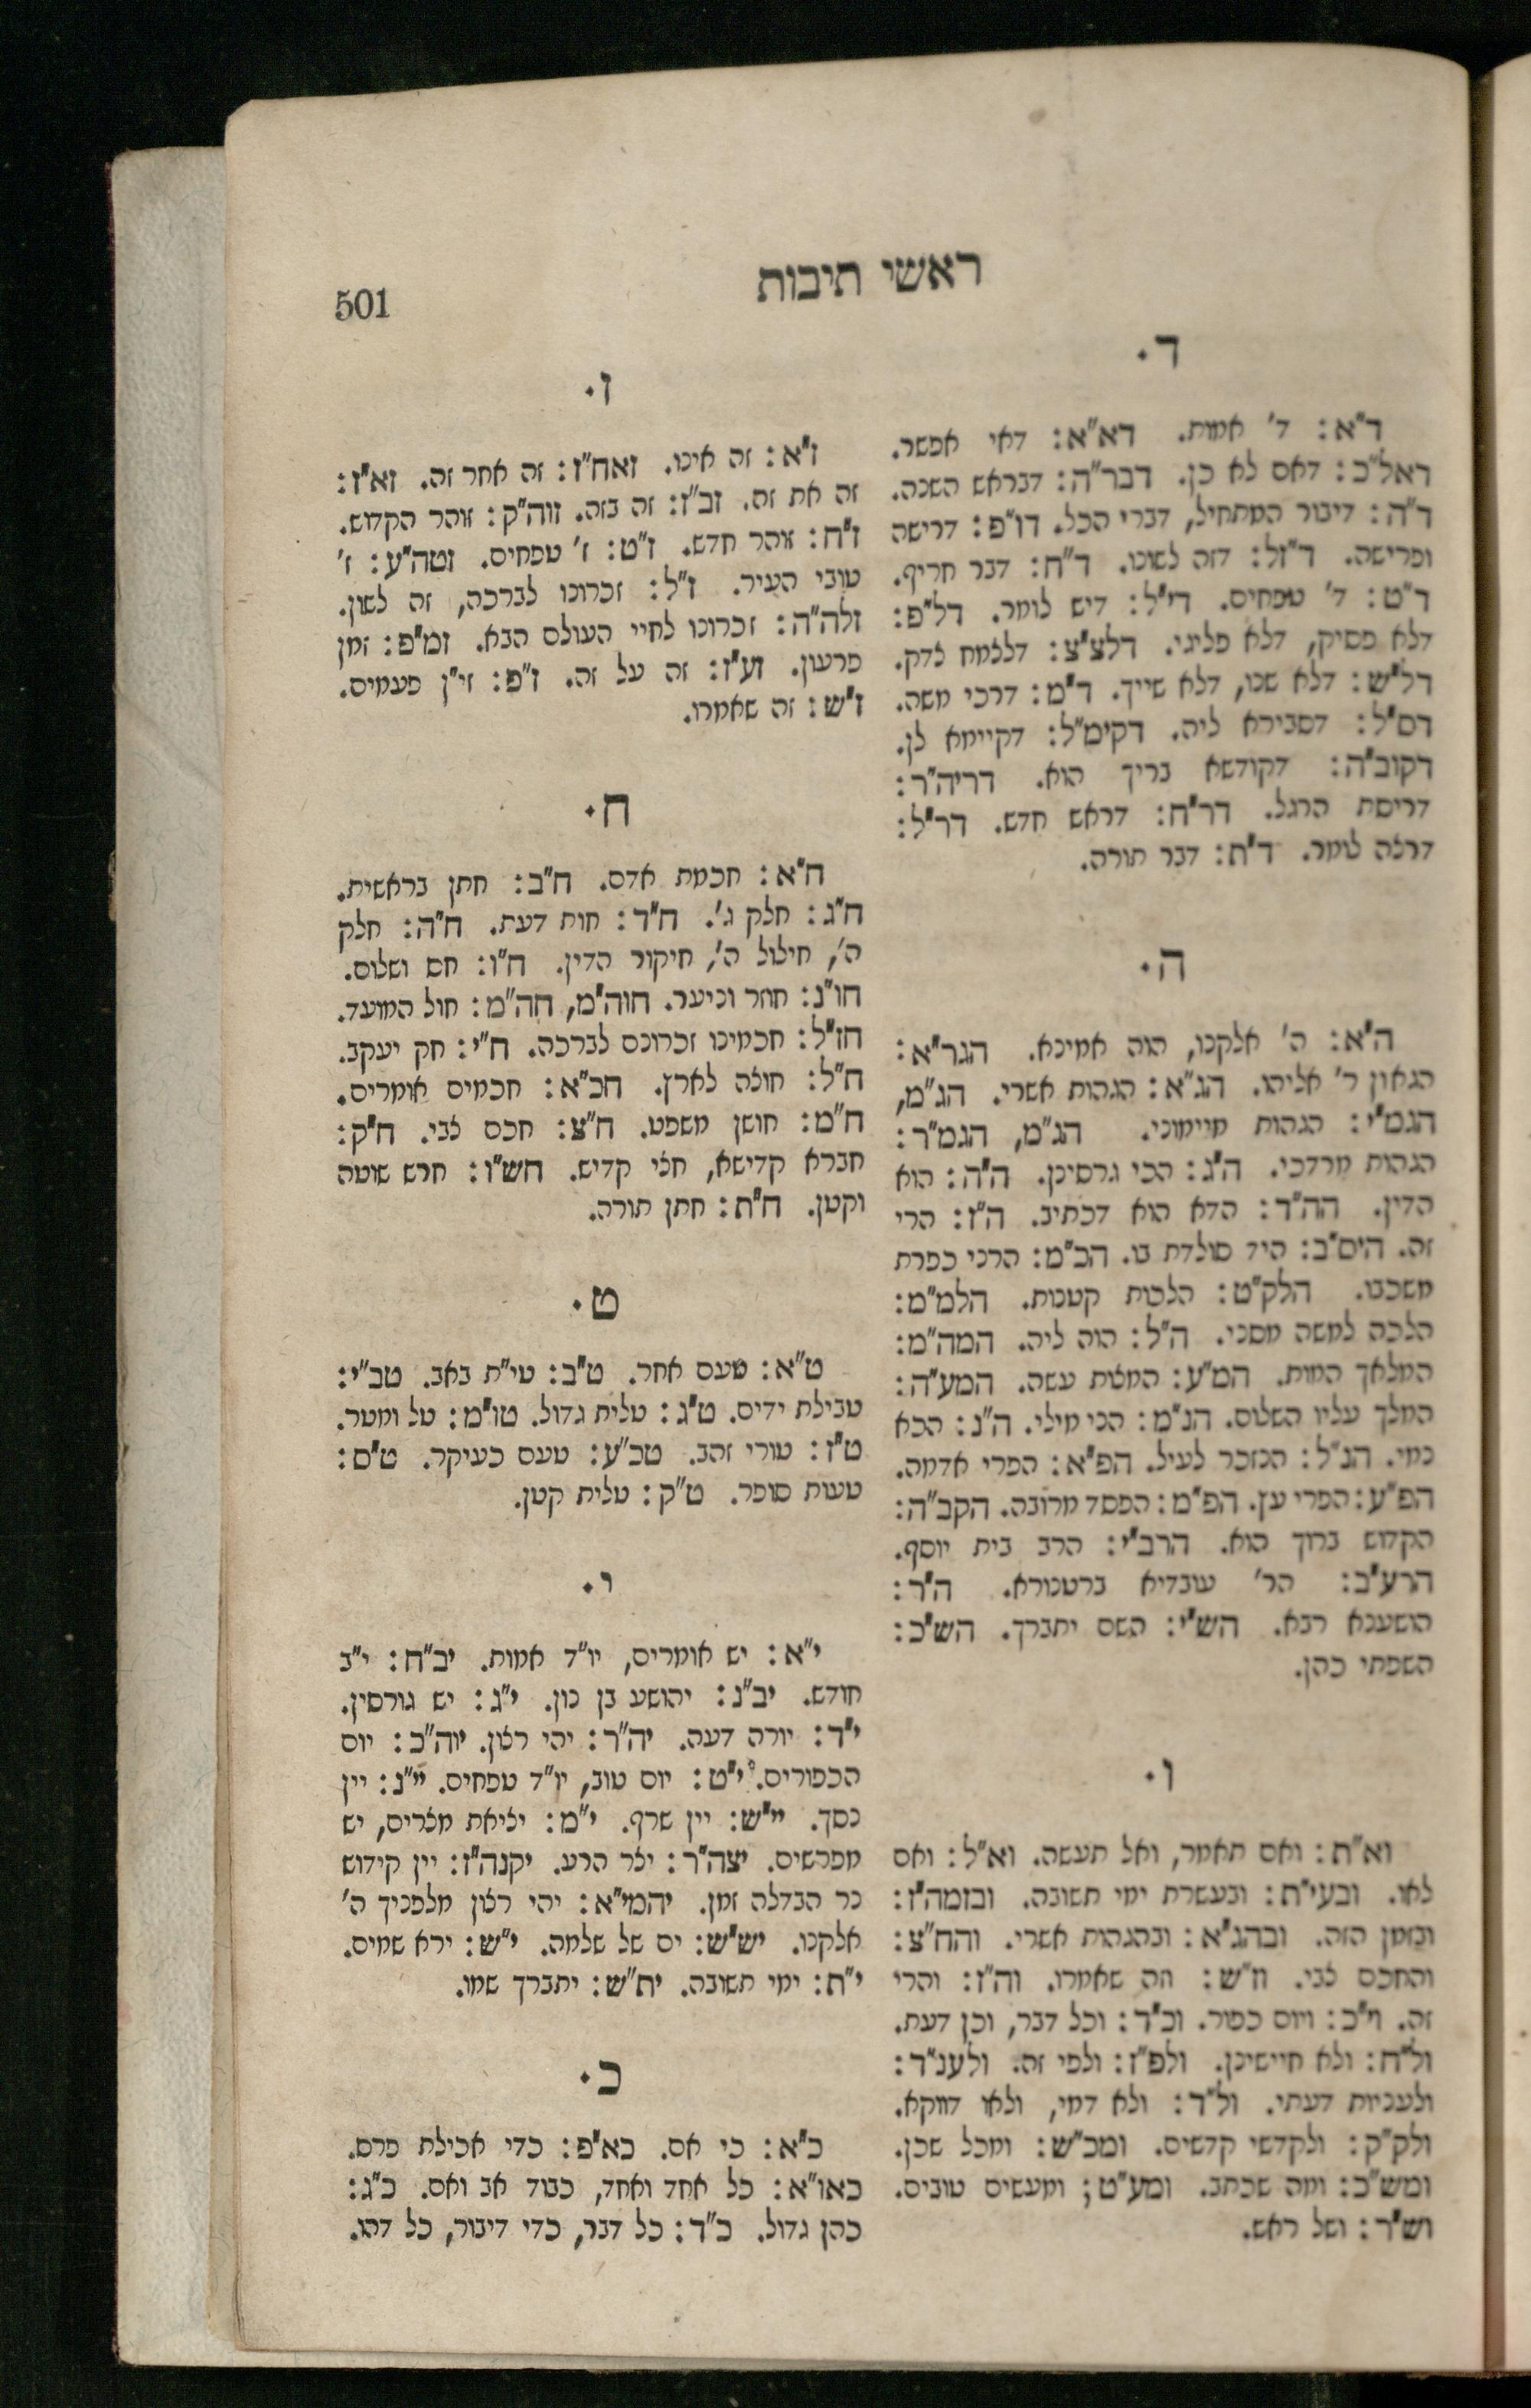 ראשי תיבות
501
ד.
ד"א: ד' אמות. דא"א: דאי אפשר.
דאל"כ: דאם לא כן. דבר"ה: דבראש השנה.
ד"ה: דיבור המתחיל, דברי הכל. דו"פ: דרישה
ופרישה. ד"זל: דזה לשונו. ד"ח: דבר חריף.
ד"ט: ד' טפחים. די"ל: דיש לומר. דל"פ:
דלא פסיק, דלא פליגי. דלצ"צ: דללמח צדק.
דל"ש: דלא שנו, דלא שייך. ד"מ: דרכי משה.
דס"ל: דסבירא ליה. דקימ"ל: דקיימא לן.
דקוב"ה: דקודשא בריך הוא. דריה"ר:
דריסת הרגל. דר"ח: דראש חדש. דר"ל:
דרצה לומר. ד"ת: דבר תורה.
ה.
ה"א: ה' אלקנו, הוה אמינא. הגר"א:
הגאון ר' אליהו. הג"א: הגהות אשרי. הג"מ,
הגמ"י: הגהות מיימוני. הג"מ, הגמ"ר:
הגהות מרדכי. ה"ג: הכי גרסינן. ה"ה: הוא
הדין. הה"ד: הדא הוא דכתיב. ה"ז: הרי
זה. היס"ב: היד סולדת בו. הכ"מ: הרני כפרת
משכבו. הלק"ט: הלכות קטנות. הלמ"מ:
הלכה למשה מסני. ה"ל: הוה ליה. המה"מ:
המלאך המות. המ"ע: המצות עשה. המע"ה:
המלך עליו השלום. הנ"מ: הני מילי. ה"נ: הכא
נמי. הנ"ל: הנזכר לעיל. הפ"א: הפרי אדמה.
הפ"ע: הפרי עץ. הפ"מ: הפסד מרובה. הקב"ה:
הקדוש ברוך הוא. הרב"י: הרב בית יוסף.
הרע"ב: הר' עובדיא ברטנורא. ה"ר:
הושענא רבא. הש"י: השם יתברך. הש"כ:
השפתי כהן.
ו.
וא"ת: ואם תאמר, ואל תעשה. וא"ל: ואם
לאו. ובעי"ת: ובעשרת ימי תשובה. ובזמה"ז:
ובזמן הזה. ובהג"א: ובהגהות אשרי. והח"צ:
והחכם צבי. וז"ש: וזה שאמרו. וה"ז: והרי
זה. וי"כ: ויום כפור. וכ"ד: וכל דבר, וכן דעת.
ול"ח: ולא חיישינן. ולפ"ז: ולפי זה. ולענ"ד:
ולעניות דעתי. ול"ד: ולא דמי, ולאו דווקא.
ולק"ק: ולקדשי קדשים. ומכ"ש: ומכל שכן.
ומש"כ: ומה שכתב. ומע"ט; ומעשים טובים.
וש"ר: ושל ראש.
ז.
ז"א: זה אינו. זאח"ז: זה אחר זה. זא"ז:
זה את זה. זב"ז: זה בזה. זוה"ק: זוהר הקדוש.
ז"ח: זוהר חדש. ז"ט: ז' טפחים. זטה"ע: ז'
טובי העיר. ז"ל: זכרונו לברכה, זה לשון.
זלה"ה: זכרונו לחיי העולם הבא. זמ"פ: זמן
פרעון. זע"ז: זה על זה. ז"פ: זי"ן פעמים.
ז"ש: זה שאמרו.
ח.
ח"א: חכמת אדם. ח"ב: חתן בראשית.
ח"ג: חלק ג'. ח"ד: חות דעת. ח"ה: חלק
ה', חילול ה', חיקור הדין. ח"ו: חס ושלום.
חו"נ: חוזר וניעור. חוה"מ, חה"מ: חול המועד.
חז"ל: חכמינו זכרונם לברכה. ח"י: חק יעקב.
ח"ל: חוצה לארץ. חכ"א: חכמים אומרים.
ח"מ: חושן משפט. ח"צ: חכם צבי. ח"ק:
חברא קדישא, חצי קדיש. חש"ו: חרש שוטה
וקטן. ח"ת: חתן תורה.
ט.
ט"א: טעם אחר. ט"ב: טי"ת באב. טב"י:
טבילת ידים. ט"ג: טלית גדול. טו"מ: טל ומטר.
ט"ז: טורי זהב. טכ"ע: טעם כעיקר. ט"ס:
טעות סופר. ט"ק: טלית קטן.
י.
י"א: יש אומרים, יו"ד אמות. יב"ח: י"ב
חודש. יב"נ: יהושע בן נון. י"ג: יש גורסין.
י"ד: יורה דעה. יה"ר: יהי רצון. יוה"כ: יום
הכפורים. י"ט: יום טוב, יו"ד טפחים. יי"נ: יין
נסך. יי"ש: יין שרף. י"מ: יציאת מצרים, יש
מפרשים. יצה"ר: יצר הרע. יקנה"ז: יין קידוש
נר הבדלה זמן. יהמי"א: יהי רצון מלפניך ה'
אלקנו. יש"ש: ים של שלמה. י"ש: ירא שמים.
י"ת: ימי תשובה. ית"ש: יתברך שמו.
כ.
כ"א: כי אם. כא"פ: כדי אכילת פרס.
כאו"א: כל אחד ואחד, כבוד אב ואם. כ"ג:
כהן גדול. כ"ד: כל דבר, כדי דיבור, כל דהו.